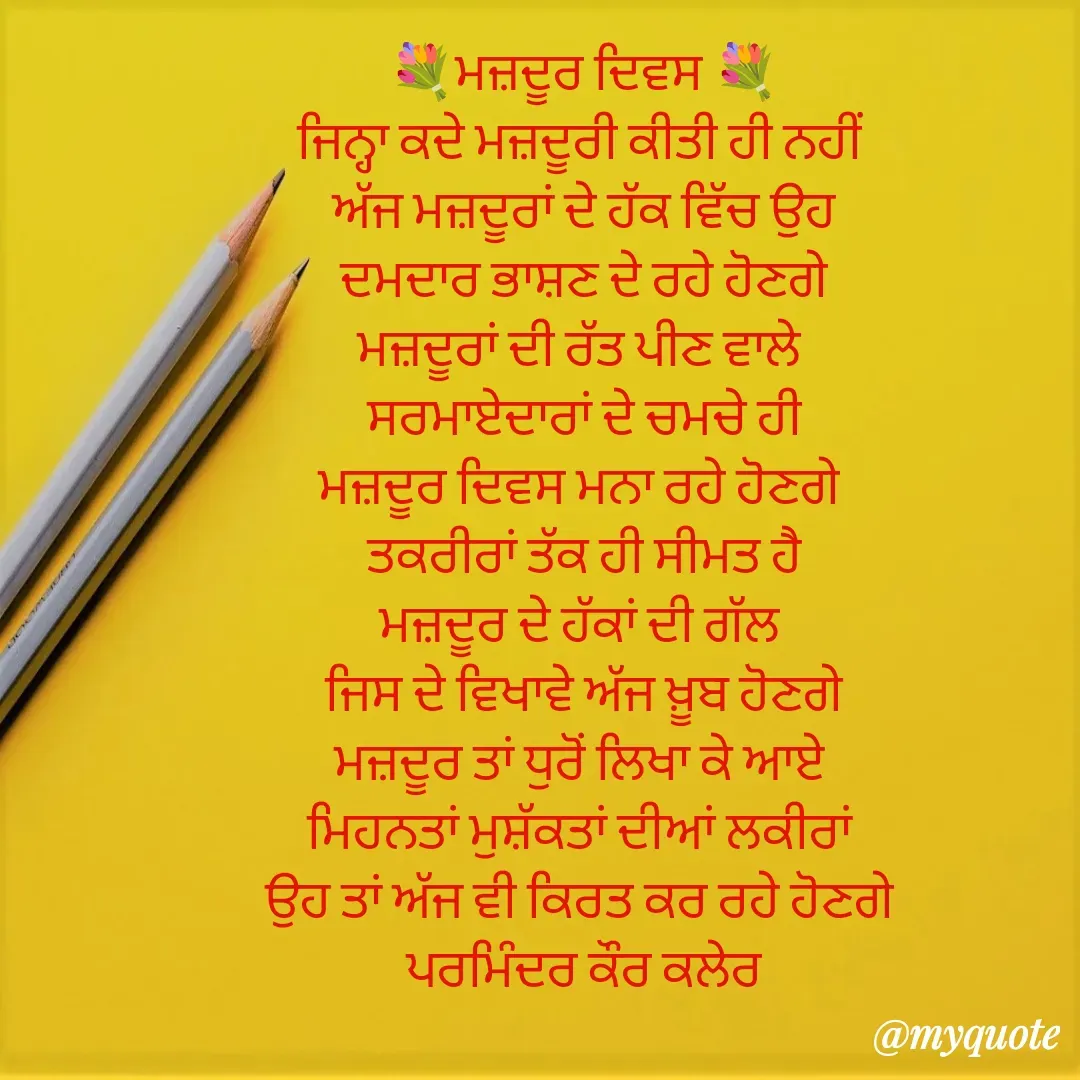 💐ਮਜ਼ਦੂਰ ਦਿਵਸ 💐
ਜਿਨ੍ਹਾ ਕਦੇ ਮਜ਼ਦੂਰੀ ਕੀਤੀ ਹੀ ਨਹੀਂ
ਅੱਜ ਮਜ਼ਦੂਰਾਂ ਦੇ ਹੱਕ ਵਿੱਚ ਉਹ
ਦਮਦਾਰ ਭਾਸ਼ਣ ਦੇ ਰਹੇ ਹੋਣਗੇ
ਮਜ਼ਦੂਰਾਂ ਦੀ ਰੱਤ ਪੀਣ ਵਾਲੇ
ਸਰਮਾਏਦਾਰਾਂ ਦੇ ਚਮਚੇ ਹੀ
ਮਜ਼ਦੂਰ ਦਿਵਸ ਮਨਾ ਰਹੇ ਹੋਣਗੇ
ਤਕਰੀਰਾਂ ਤੱਕ ਹੀ ਸੀਮਤ ਹੈ
ਮਜ਼ਦੂਰ ਦੇ ਹੱਕਾਂ ਦੀ ਗੱਲ
ਜਿਸ ਦੇ ਵਿਖਾਵੇ ਅੱਜ ਖ਼ੂਬ ਹੋਣਗੇ
ਮਜ਼ਦੂਰ ਤਾਂ ਧੁਰੋਂ ਲਿਖਾ ਕੇ ਆਏ
ਮਿਹਨਤਾਂ ਮੁਸ਼ੱਕਤਾਂ ਦੀਆਂ ਲਕੀਰਾਂ
ਉਹ ਤਾਂ ਅੱਜ ਵੀ ਕਿਰਤ ਕਰ ਰਹੇ ਹੋਣਗੇ
ਪਰਮਿੰਦਰ ਕੌਰ ਕਲੇਰ
@myquote